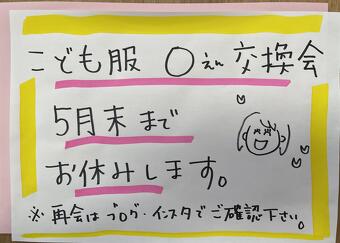 こども服 〇えん 交換会
5月末まで
お休みします。
※再会はブログ・インスタでご確認下さい。